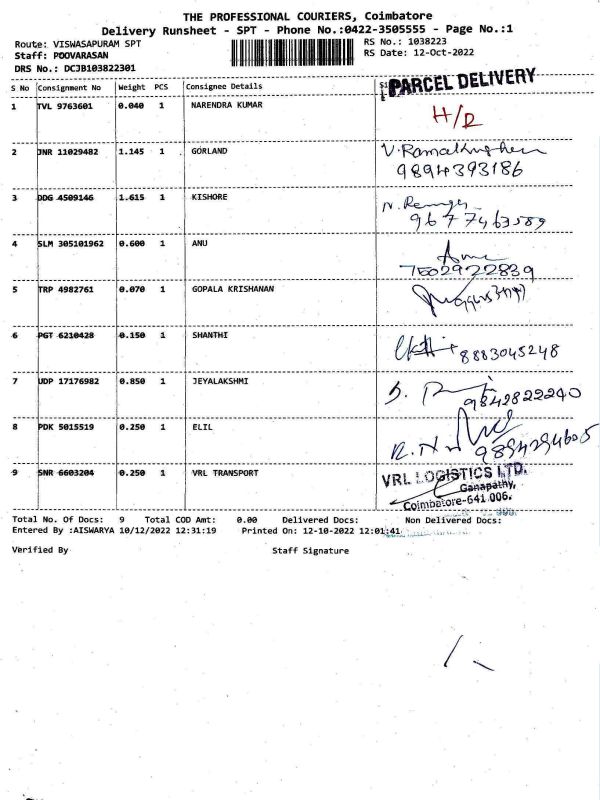 THE PROFESSIONAL COURIERS, Coimbatore
Delivery Runsheet - SPT - Phone No.:0422-3505555 - Page No.:1
Route: VISWASAPURAM SPT
RS No.: 1038223
Staff: POOVARASAN
RS Date: 12-Oct-2022
DRS No.: DCJB103822301
S No Consignment No Weight PCS Consignee Details
PARCEL DELIVERY
1 TVL 9763601 0.040 1 NARENDRA KUMAR
H/R
2 JNR 11029482 1.145 1 GORLAND
9894393186
3 DDG 4509146 1.615 1 KISHORE
9677463589
4 SLM 305101962 0.600 1 ANU
7502922839
5 TRP 4982761 0.070 1 GOPALA KRISHANAN
6 PGT 6210428 0.150 1 SHANTHI
8883045248
7 UDP 17176982 0.850 1 JEYALAKSHMI
9842822240
8 PDK 5015519 0.250 1 ELIL
9894294605
9 SNR 6603204 0.250 1 VRL TRANSPORT
VRL LOGISTICS LTD.
Ganapathy,
Coimbatore-641 006.
Total No. Of Docs: 9 Total COD Amt: 0.00 Delivered Docs: Non Delivered Docs:
Entered By :AISWARYA 10/12/2022 12:31:19 Printed On: 12-10-2022 12:01:41
Verified By Staff Signature